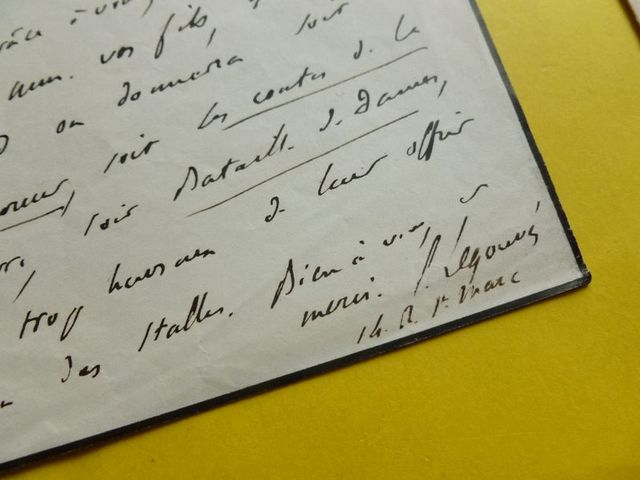 grâce à vous,
vos fils,
on donnera soit
soit les contes de la
soit Bataille de Dames,
trop heureux de leur offrir
des stalles. Bien à vous, et
merci. E. Legouvé
14 R. St Marc